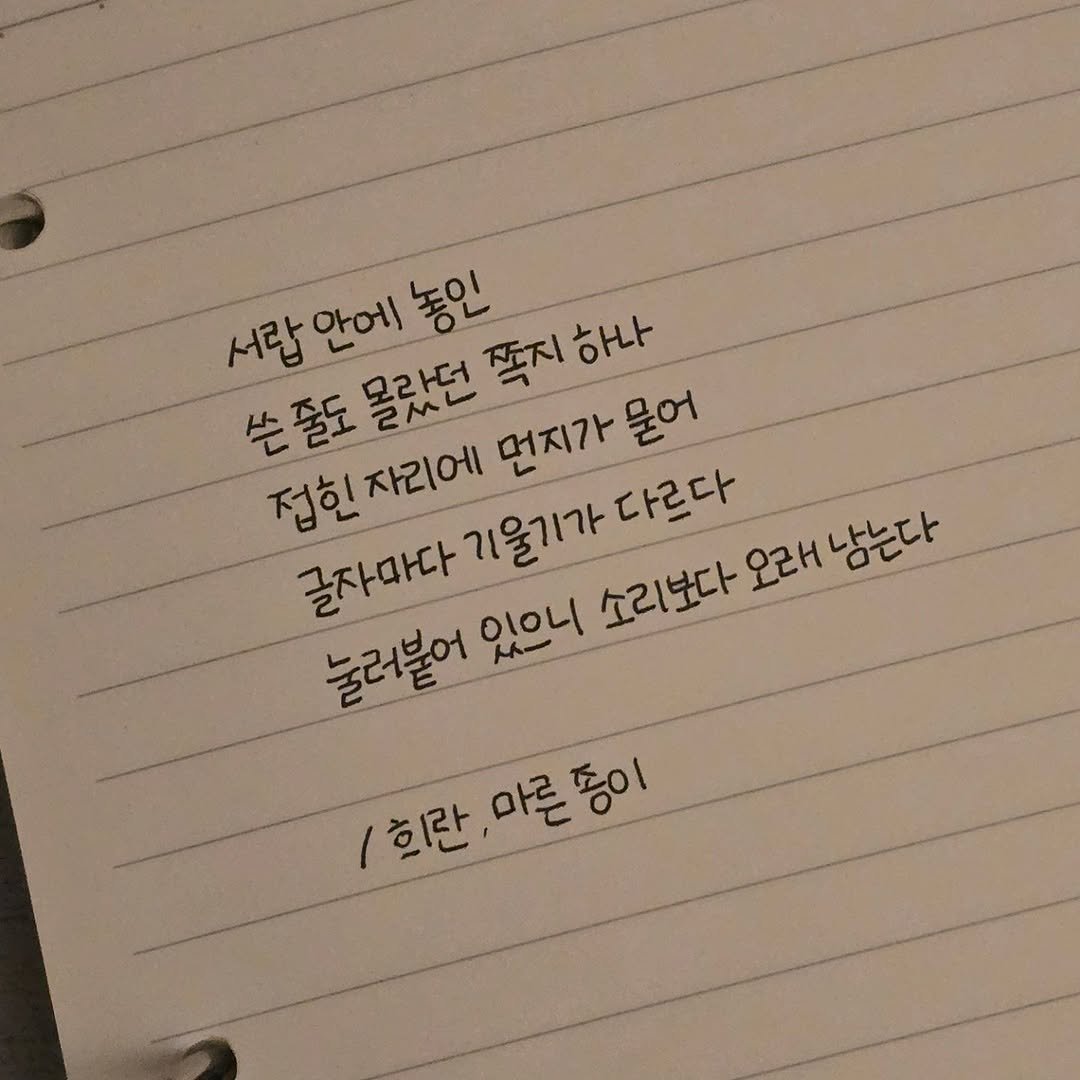 서랍 안에 놓인
쓴 줄도 몰랐던 쪽지 하나
접힌 자리에 먼지가 묻어
글자마다 기울기가 다르다
눌러붙어 있으니 소리보다 오래 남는다
/ 희란, 마른 종이